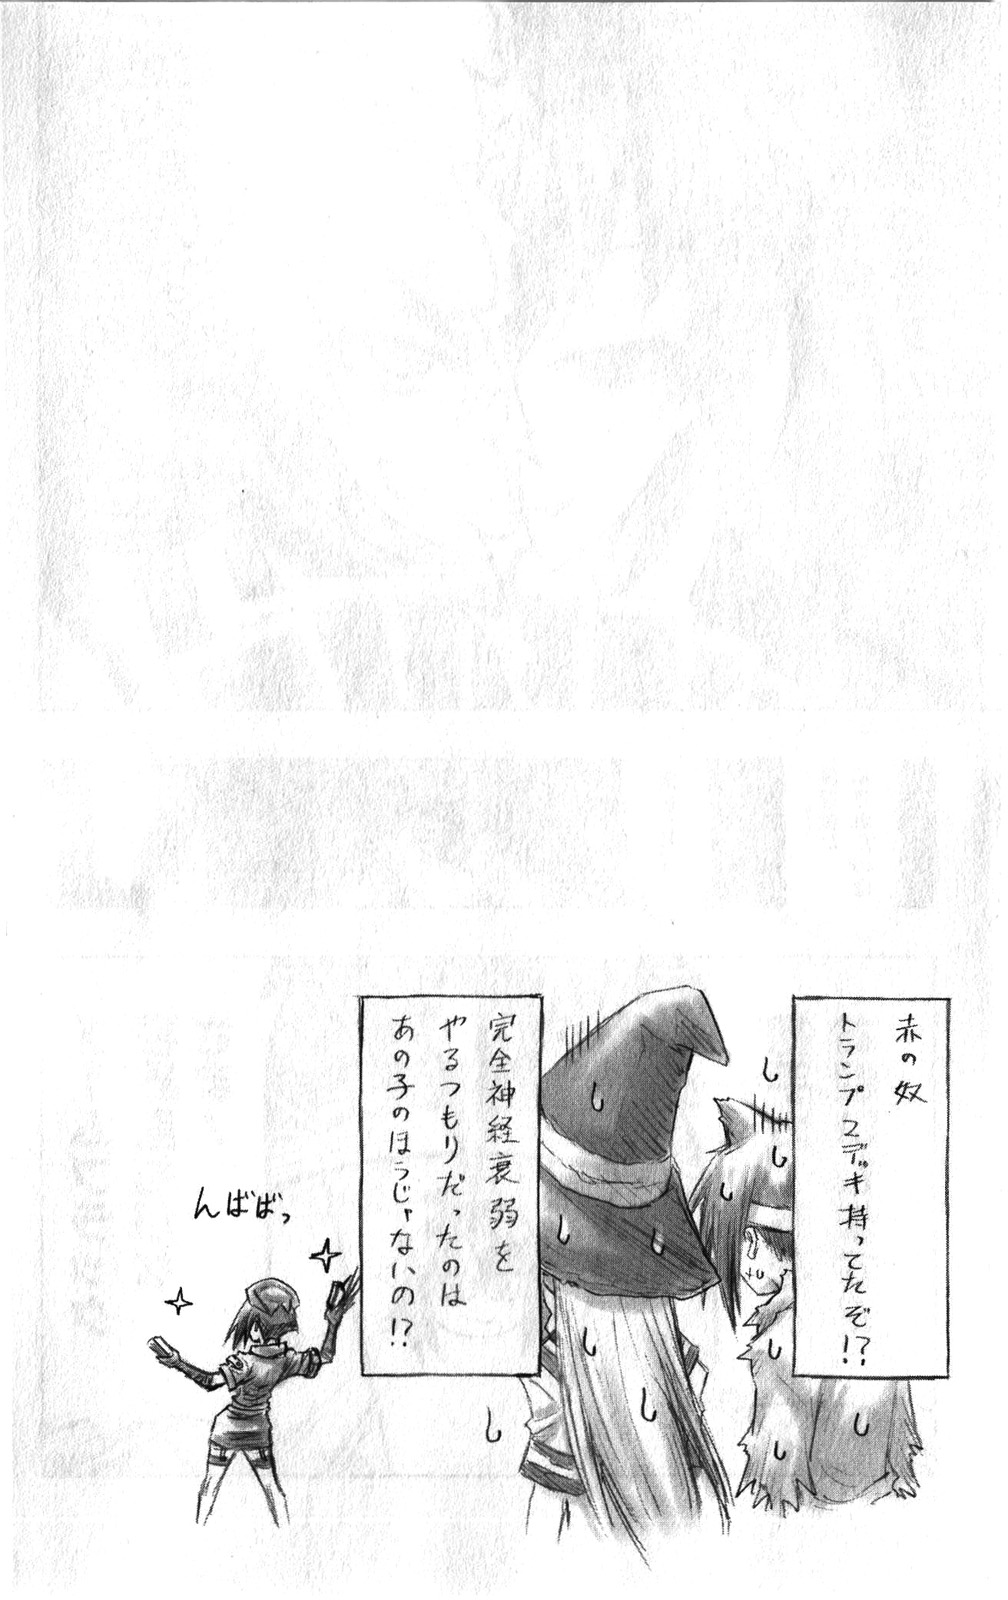 赤の奴
トランプ2デッキ持ってたぞ!?
完全神経衰弱を
やるつもりだったのは
あの子のほうじゃないの!?
んばばっ